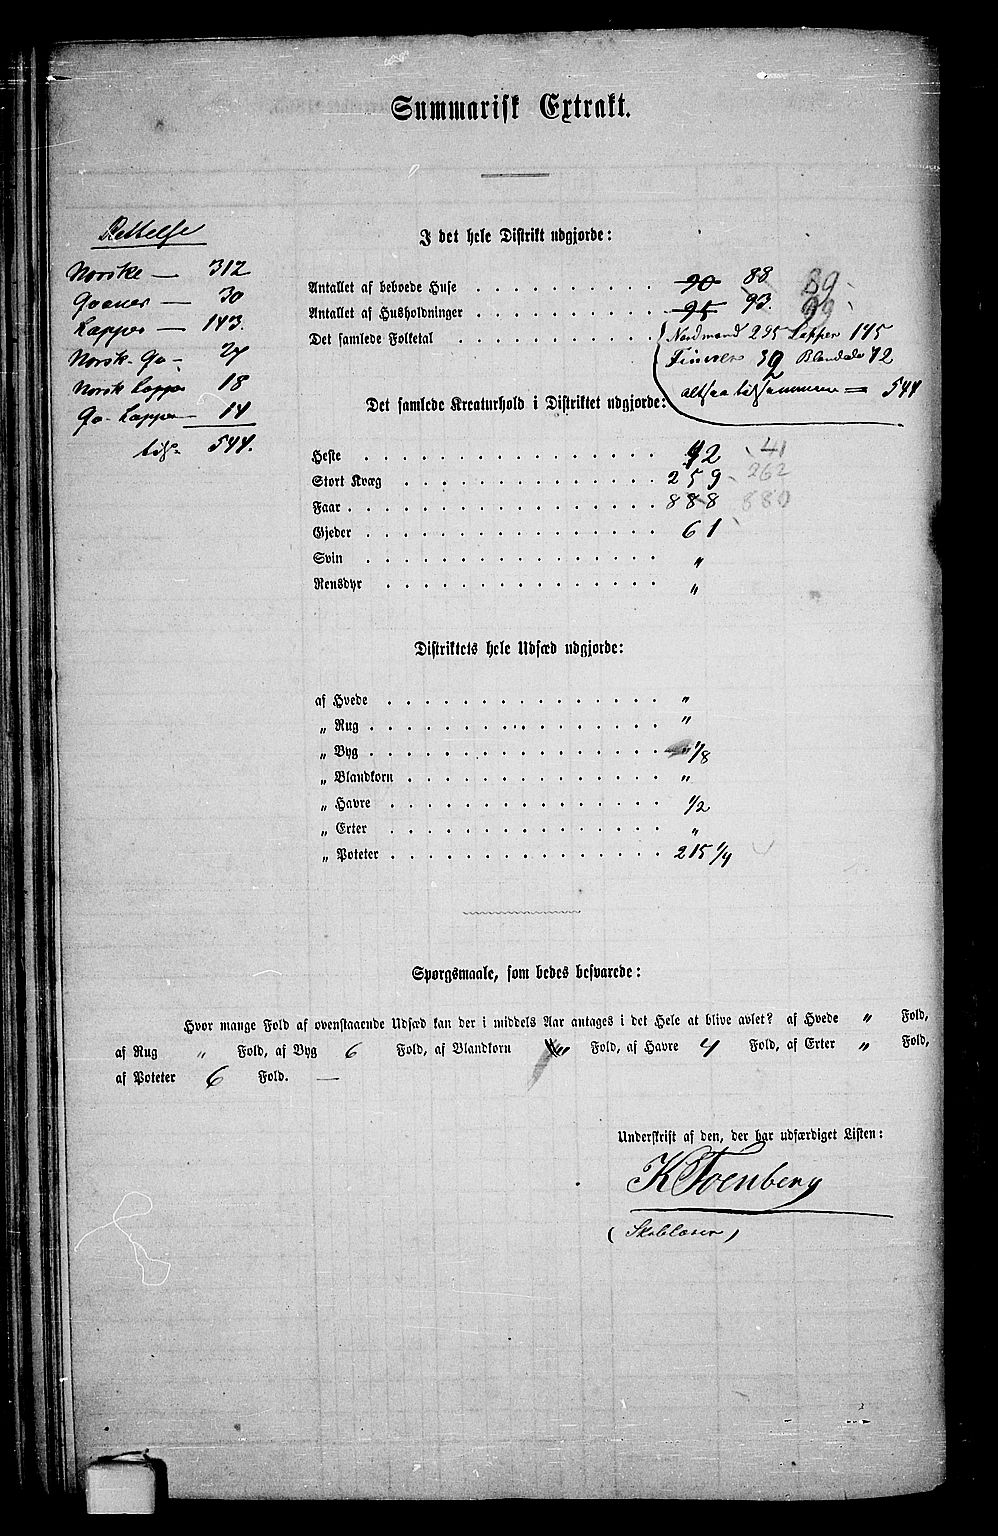 Summarisk Extrakt.
Rettelse
Norske — 312
Qvæner — 30
Lapper — 143.
Norsk-Qv - 27
Norsk Lapper 18
Qv-Lapper 14
tils. 544.
I det hele Distrikt udgjorde:
Antallet af beboede Huse 90 88 89
Antallet af Husholdninger 95 93. 99
Det samlede Folketal Nordmænd 295 Lapper 175
Finner 39 Blandede 72
altsaa tilsammen = 544
Det samlede Kreaturhold i Distriktet udgjorde:
Heste 42 41
Stort Kvæg 259 262
Faar 888 880
Gjeder 61
Svin "
Rensdyr "
Distriktets hele Udsæd udgjorde:
af Hvede "
„ Rug "
„ Byg 1/8
„ Blandkorn "
„ Havre 1/2
„ Erter "
„ Poteter 215 1/4
Spørgsmaale, som bedes besvarede:
Hvor mange Fold af ovenstaaende Udsæd kan der i middels Aar antages i det Hele at blive avlet? af Hvede " Fold,
af Rug " Fold, af Byg 6 Fold, af Blandkorn " Fold, af Havre 4 Fold, af Erter " Fold,
af Poteter 6 Fold. —
Underskrift af den, der har udfærdiget Listen:
K Toenberg
(Skolelærer)